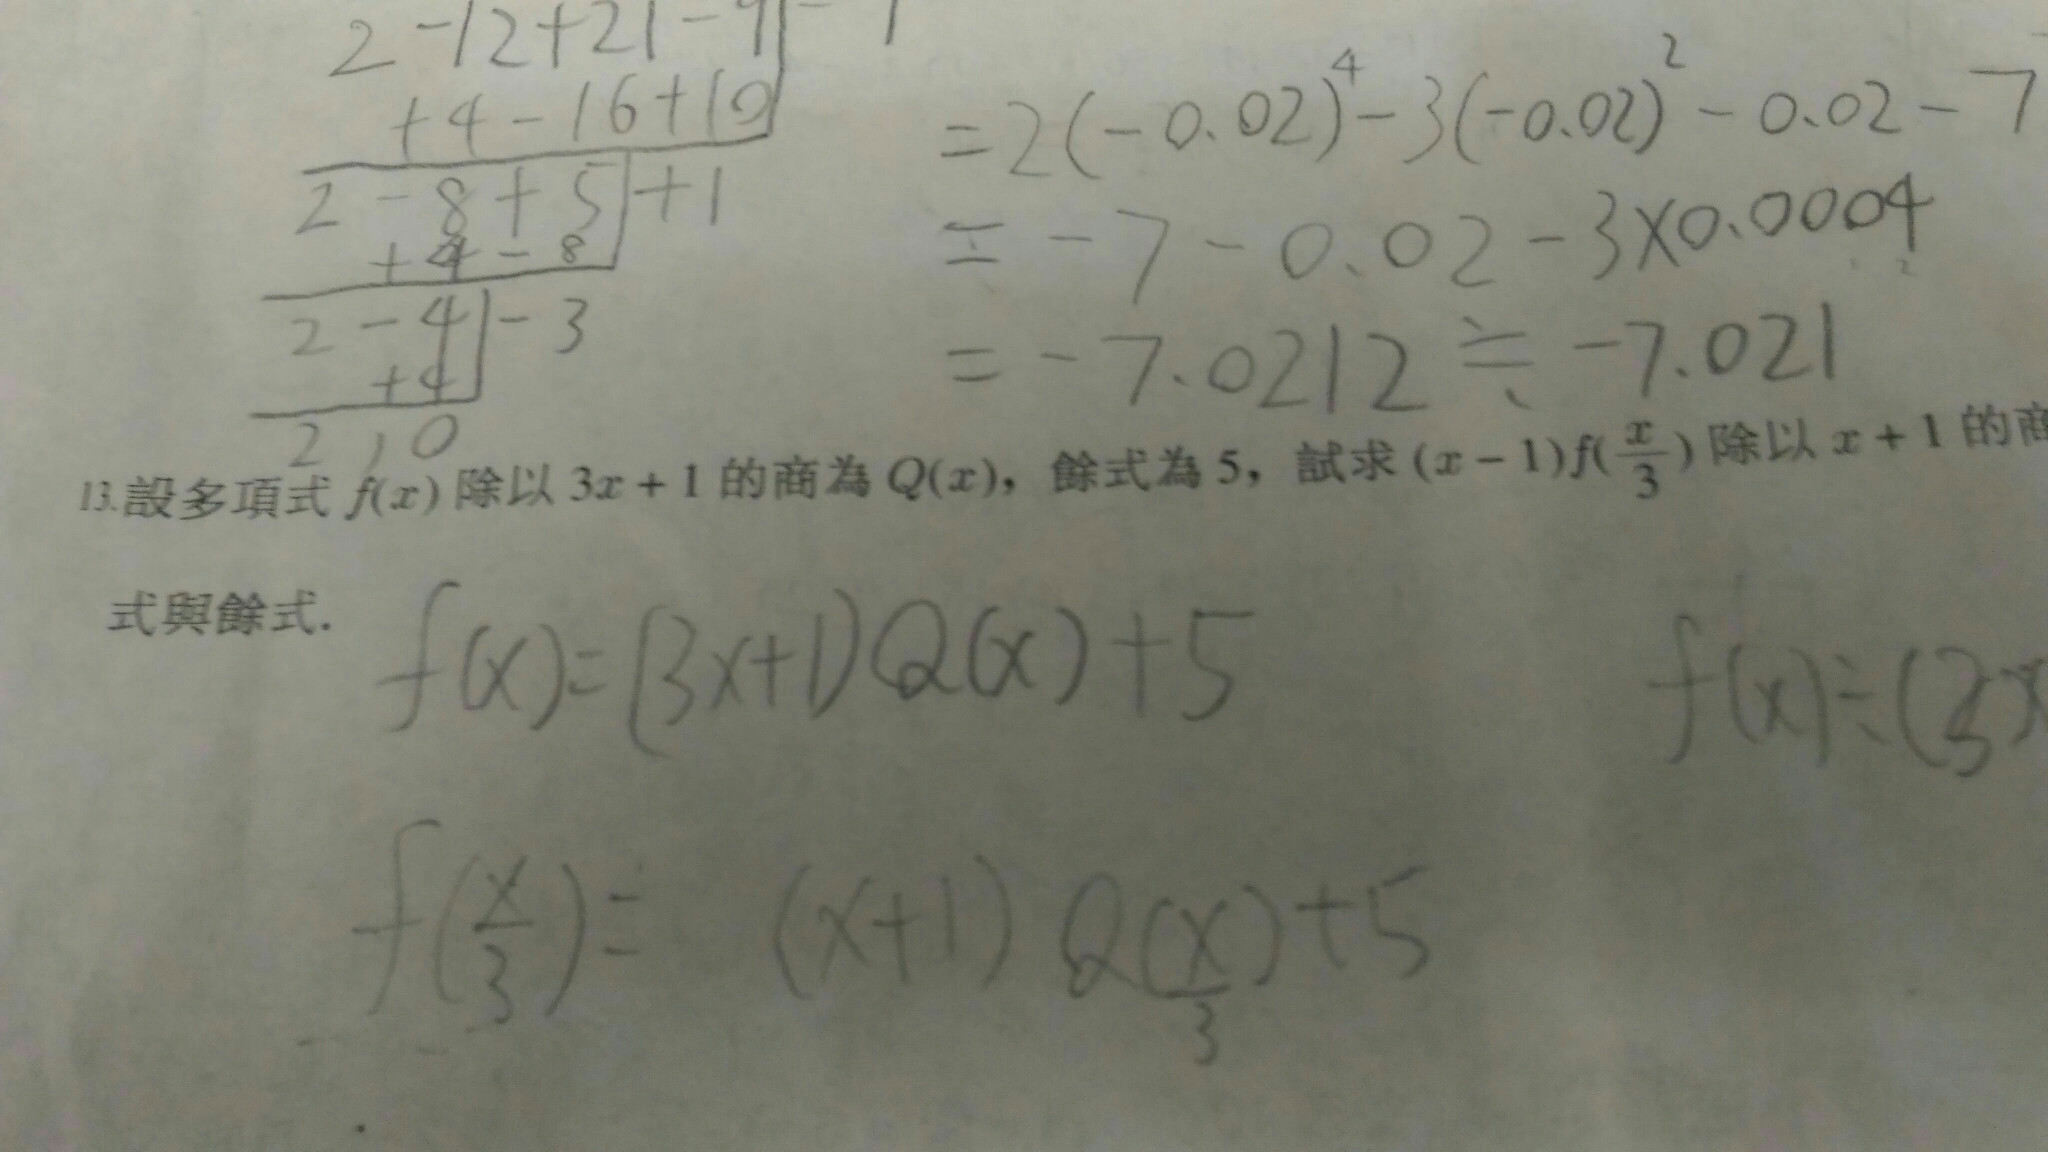 2 -12+21-9 -1
+4-16+10
2 -8+5 +1
+4-8
2 -4 -3
+4
2, 0
=2(-0.02)⁴-3(-0.02)²-0.02-7
=-7-0.02-3×0.0004
=-7.0212≒-7.021
13.設多項式 f(x) 除以 3x + 1 的商為 Q(x)，餘式為 5，試求 (x − 1)f(x/3) 除以 x + 1 的商
式與餘式.
f(x)=(3x+1)Q(x)+5
f(x)÷(3x
f(x/3)= (x+1) Q(x/3)+5